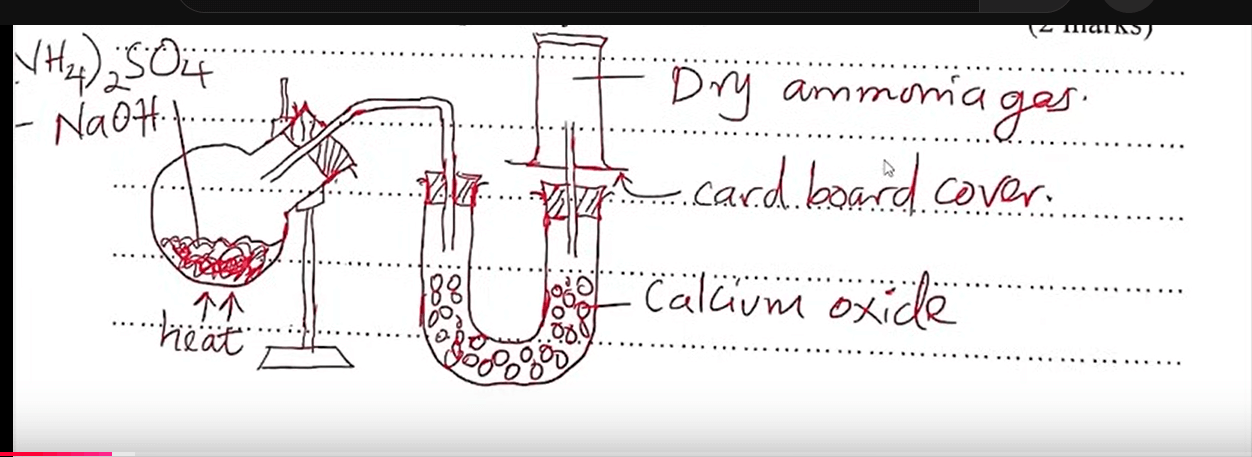 (2 marks)
NH4)2SO4
- NaOH
Dry ammonia gas.
card board cover.
Calcium oxide
heat